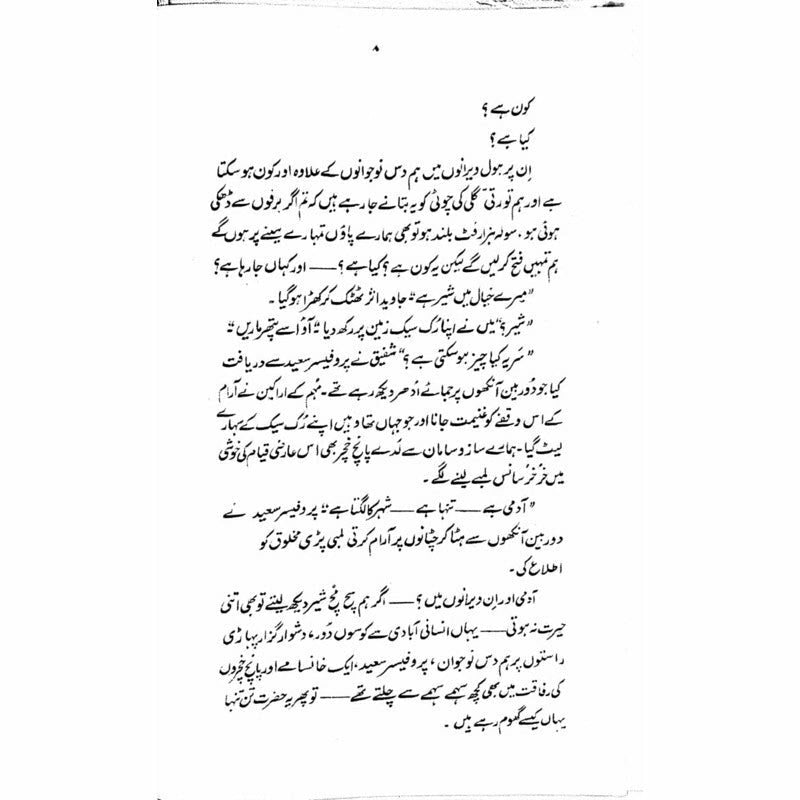 ۸
کون ہے ؟
کیا ہے ؟
اِن پر ہول ویرانوں میں ہم دس نوجوانوں کے علاوہ اور کون ہو سکتا
ہے اور ہم تو رتی گلی کی چوٹی کو یہ بتانے جا رہے ہیں کہ تم اگر برفوں سے ڈھکی
ہوئی ہو . سولہ ہزار فٹ بلند ہو تو بھی ہمارے پاؤں تمہارے سینے پر ہوں گے
ہم تمہیں فتح کر لیں گے لیکن یہ کون ہے ؟ کیا ہے ؟ —— اور کہاں جا رہا ہے ؟
"میرے خیال میں شیر ہے" جاوید اثر ٹھٹک کر کھڑا ہو گیا ۔
"شیر ؟" میں نے اپنا رُک سیک زمین پر رکھ دیا "آؤ اسے پتھر ماریں"
"سر یہ کیا چیز ہو سکتی ہے ؟" شفیق نے پروفیسر سعید سے دریافت
کیا جو دُور بین آنکھوں پر جمائے اُدھر دیکھ رہے تھے ۔ مُہم کے اراکین نے آرام
کے اس وقفے کو غنیمت جانا اور جو جہاں تھا وہیں اپنے رُک سیک کے سہارے
لیٹ گیا ۔ ہمارے ساز و سامان سے لدے پانچ خچر بھی اس عارضی قیام کی خوشی
میں خُرخُر سانس لمبے لینے لگے ۔
"آدمی ہے —— تنہا ہے —— شہر کا لگتا ہے" پروفیسر سعید نے
دوربین آنکھوں سے ہٹا کر چٹانوں پر آرام کرتی لمبی پڑی مخلوق کو
اطلاع کی ۔
آدمی اور اِن ویرانوں میں ؟ —— اگر ہم سچ مُچ شیر دیکھ لیتے تو بھی اتنی
حیرت نہ ہوتی —— یہاں انسانی آبادی سے کوسوں دُور ، دشوار گزار پہاڑی
راستوں پر ہم دس نوجوان ، پروفیسر سعید ، ایک خانسامے اور پانچ خچروں
کی رفاقت میں بھی کچھ سہمے سہمے سے چلتے تھے —— تو پھر یہ حضرت تن تنہا
یہاں کیسے گھوم رہے ہیں ۔